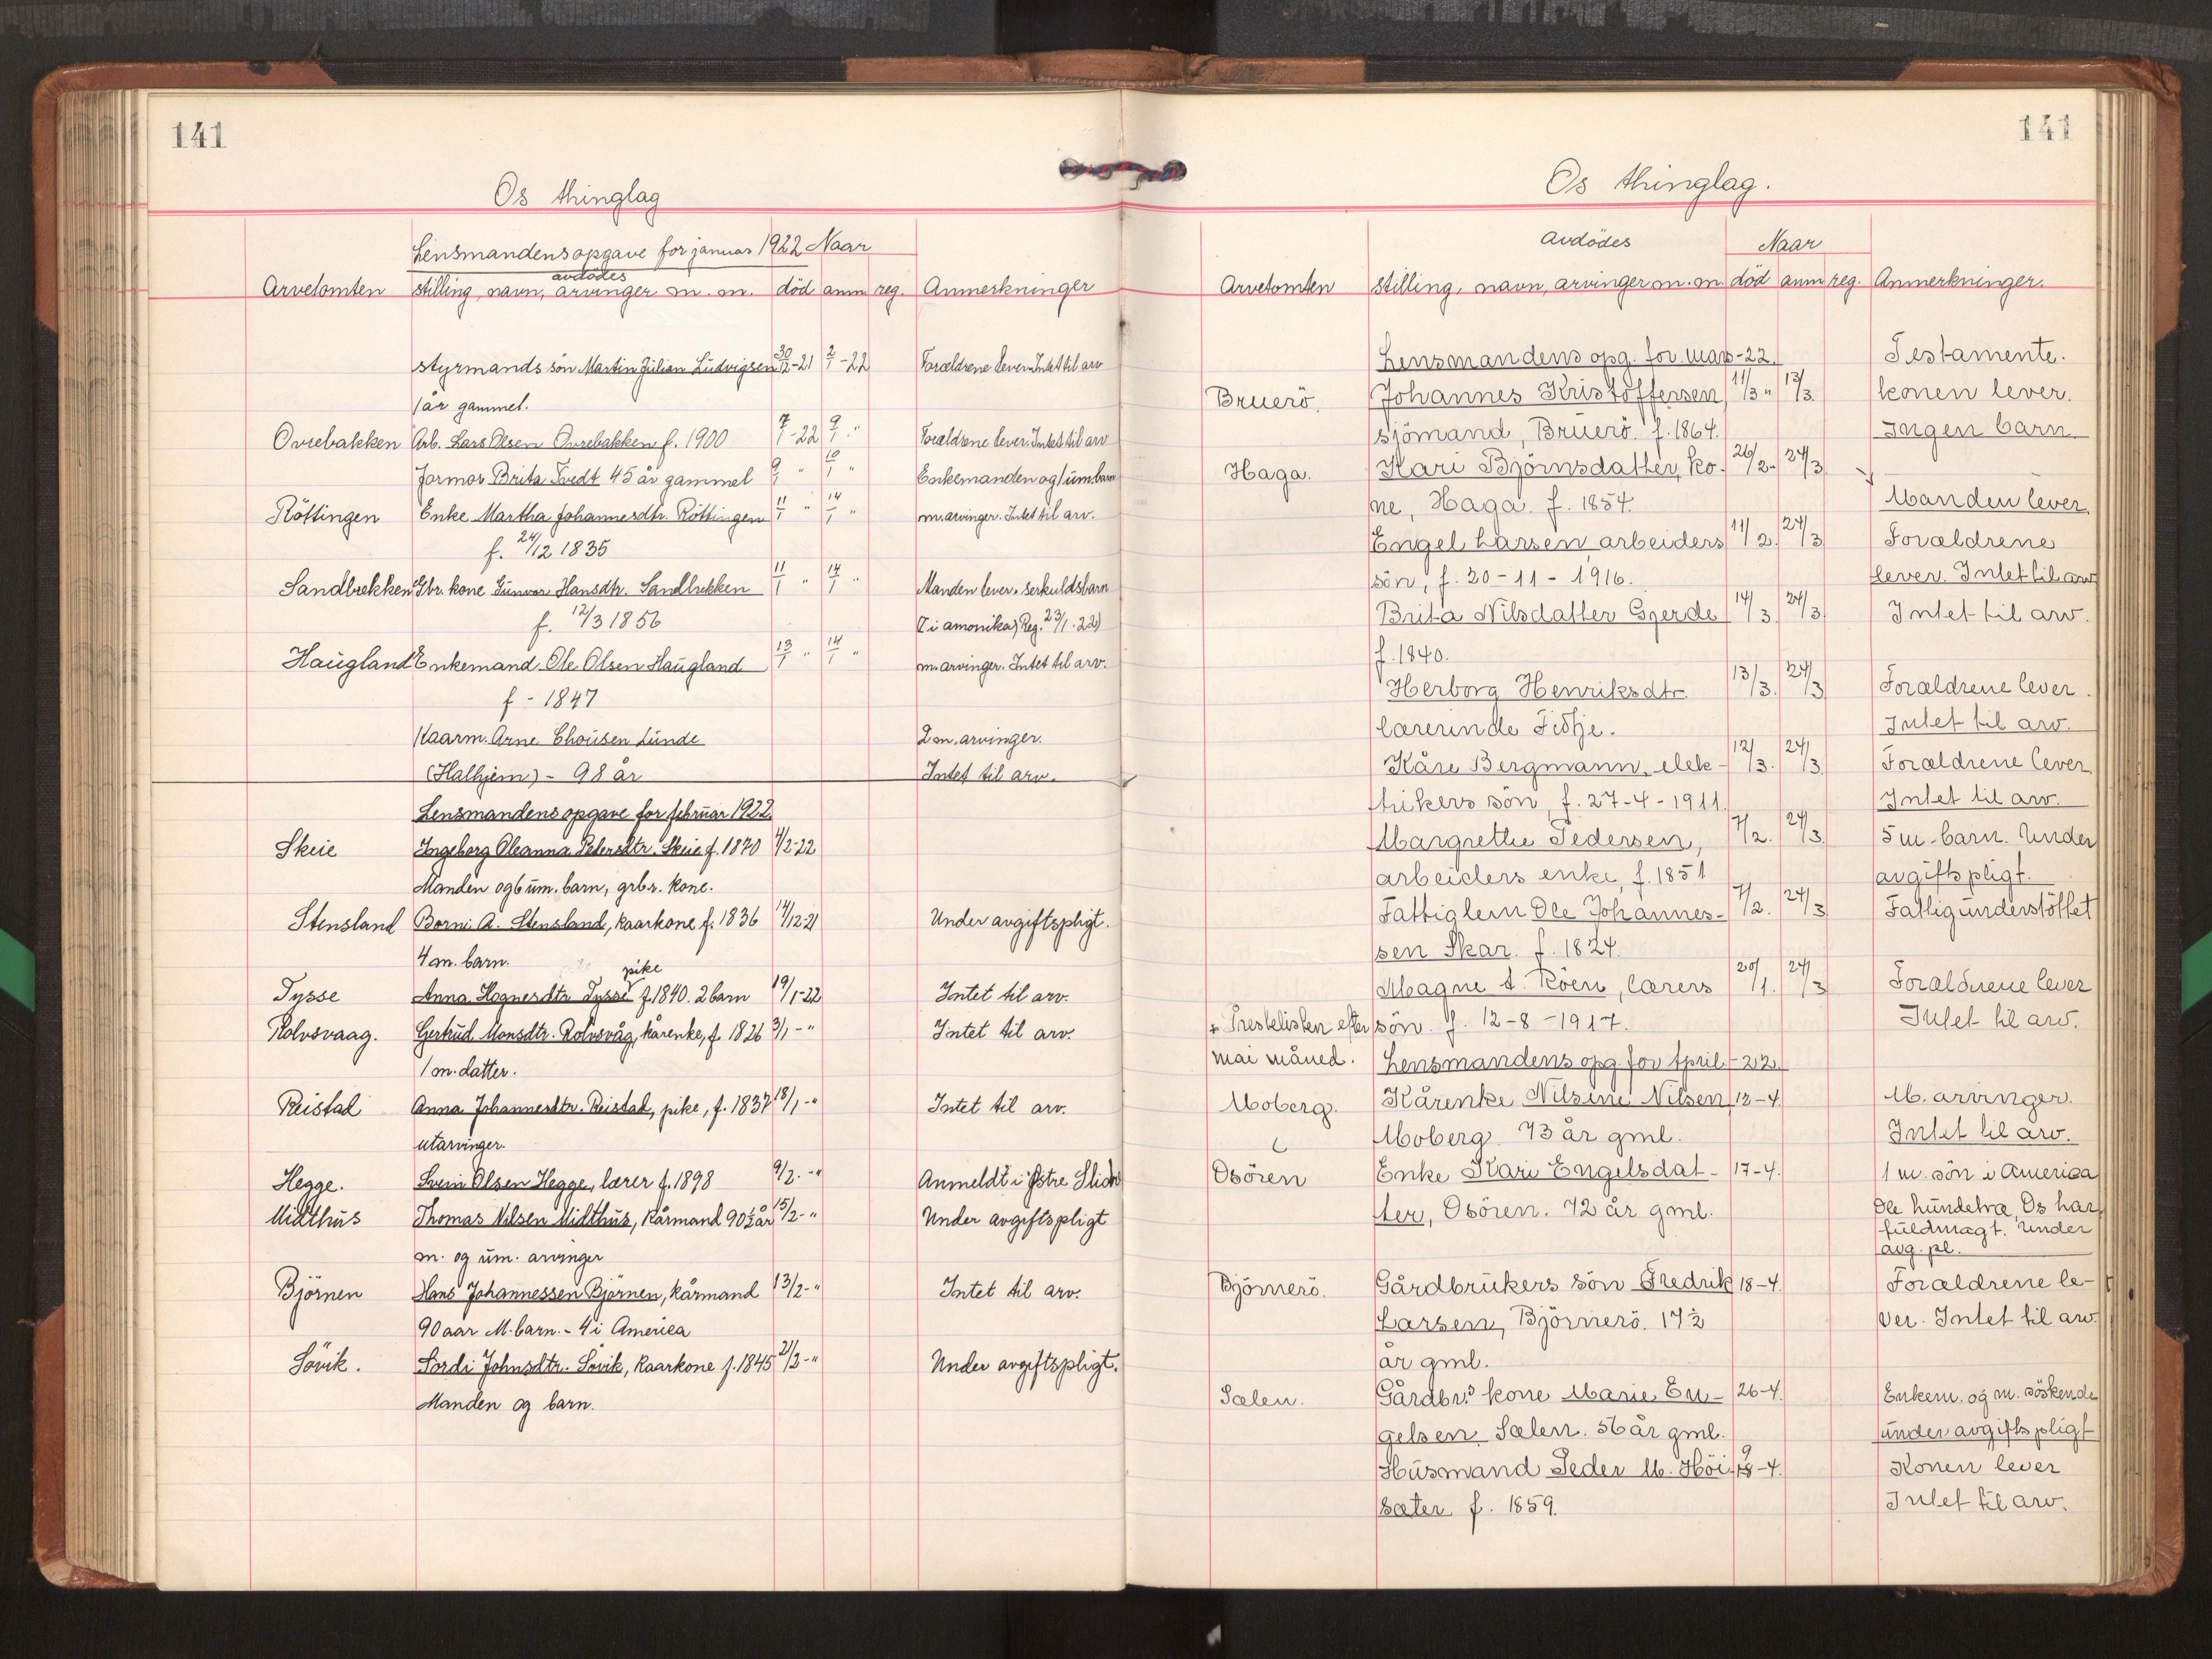 141
Os thinglag
Lensmandens opgave for januar 1922 Naar
avdödes
Arvetomten stilling, navn, arvinger m. m. död anm. reg. Anmerkninger
styrmands sön Martin Julian Ludvigsen 30/12-21 2/1-22 Forældrene lever. Intet til arv
1 år gammel.
Ovrebakken Arb. Lars Olsen Ovrebakken f. 1900 7/1-22 9/1 " Forældrene lever. Intet til arv
Jormor Brita Tvedt 45 år gammel 9/1 " 10/1 " Enkemanden og 1 um. barn
Röttingen Enke Martha Johannesdtr. Röttingen 11/1 " 14/1 " m. arvinger. Intet til arv.
f. 24/12 1835
Sandbrekken Gbr. kone Gunvor Hansdtr. Sandbrekken 11/1 " 14/1 " Manden lever. serkuldsbarn
f. 12/3 1856 (i amerika) Reg. 23/1-22)
Haugland Enkemand Ole Olsen Haugland 13/1 " 14/1 " m. arvinger. Intet til arv.
f - 1847
Kaarm. Arne Lunde 2 m. arvinger.
(Halhjem) - 98 år Intet til arv.
Lensmandens opgave for februar 1922
Skeie Ingeborg Oleanna Pedersdtr. Skeie f. 1870 4/2-22
Manden og 6 um. barn, grbr. kone.
Stensland Borni A. Stensland, kaarkone f. 1836 14/12-21 Under avgiftspligt.
4 m. barn.
pike
Tysse Anna Hognesdtr Tysse f. 1840. 2 barn 19/1-22 Intet til arv.
Rolvsvaag. Gertrud Monsdtr. Rolvsvåg, kårenke, f. 1826 3/1-" Intet til arv.
1 m. datter.
Reistad Anna Johannesdtr. Reistad, pike, f. 1837 18/1-" Intet til arv.
utarvinger.
Hegge. Svein Olsen Hegge, lærer f. 1898 9/2.-" Anmeldt i Østre Slidre
Midthus Thomas Nilsen Midthus, kårmand 90½ år 15/2-" Under avgiftspligt
m. og um. arvinger
Björnen Hans Johannessen Björnen, kårmand 13/2-" Intet til arv.
90 aar M. barn. - 4 i America
Sövik. Sordi Johnsdtr. Sövik, kaarkone f. 1845 21/2-" Under avgiftspligt.
Manden og barn.
141
Os thinglag.
avdödes Naar
Arvetomten stilling, navn, arvinger m. m. död anm reg. Anmerkninger.
Lensmandens opg. for mars-22. Testamente.
Bruerö. Johannes Kristoffersen 11/3 " 13/3. konen lever.
sjömand, Bruerö. f. 1864. Ingen barn.
Haga. Kari Björnsdatter, ko- 26/2- 24/3
ne, Haga. f. 1854. Manden lever.
Engel Larsen arbeiders 11/2. 24/3 Forældrene
sön, f. 20-11-1916. lever. Intet til arv
Brita Nilsdatter Gjerde 14/3 24/3. Intet til arv.
f. 1840.
Herborg Henriksdtr 13/3. 24/3 Forældrene lever.
lærerinde Fidtje. Intet til arv.
Kåre Bergmann, elek- 12/3. 24/3. Forældrene lever.
trikers sön, f. 27-4-1911. Intet til arv.
Margrethe Pedersen, 7/2. 24/3. 5 m. barn. Under
arbeiders enke, f. 1851 avgiftspligt.
Fattiglem Ole Johannes- 7/2. 24/3 Fattigunderstöttet
sen Skar. f. 1824.
Magne A. Röen, lærers 20/1. 24/3 Forældrene lever
+ Prestelisten efter sön. f. 12-8-1917. Intet til arv.
mai måned. Lensmandens opg. for April-22.
Moberg. Kårenke Nilsine Nilsen 12-4. M. arvinger.
Moberg. 73 år gml. Intet til arv.
Osören Enke Kari Engelsdat- 17-4. 1 m. sön i America
ter, Osören. 72 år gml. Ole Hundetræ Os har
fuldmagt. Under
avg. pl.
Björnerö. Gårdbrukers sön Fredrik 18-4. Forældrene le-
Larsen, Björnerö. 17½ ver. Intet til arv.
år gml.
Sælen. Gårdbr.s kone Marie En- 26-4. Enkem. og m. söskende
gelsen Sælen. 56 år gml. under avgiftspligt
Husmand Peder M. Höi- 9-4. Konen lever
sæter f. 1859. Intet til arv.